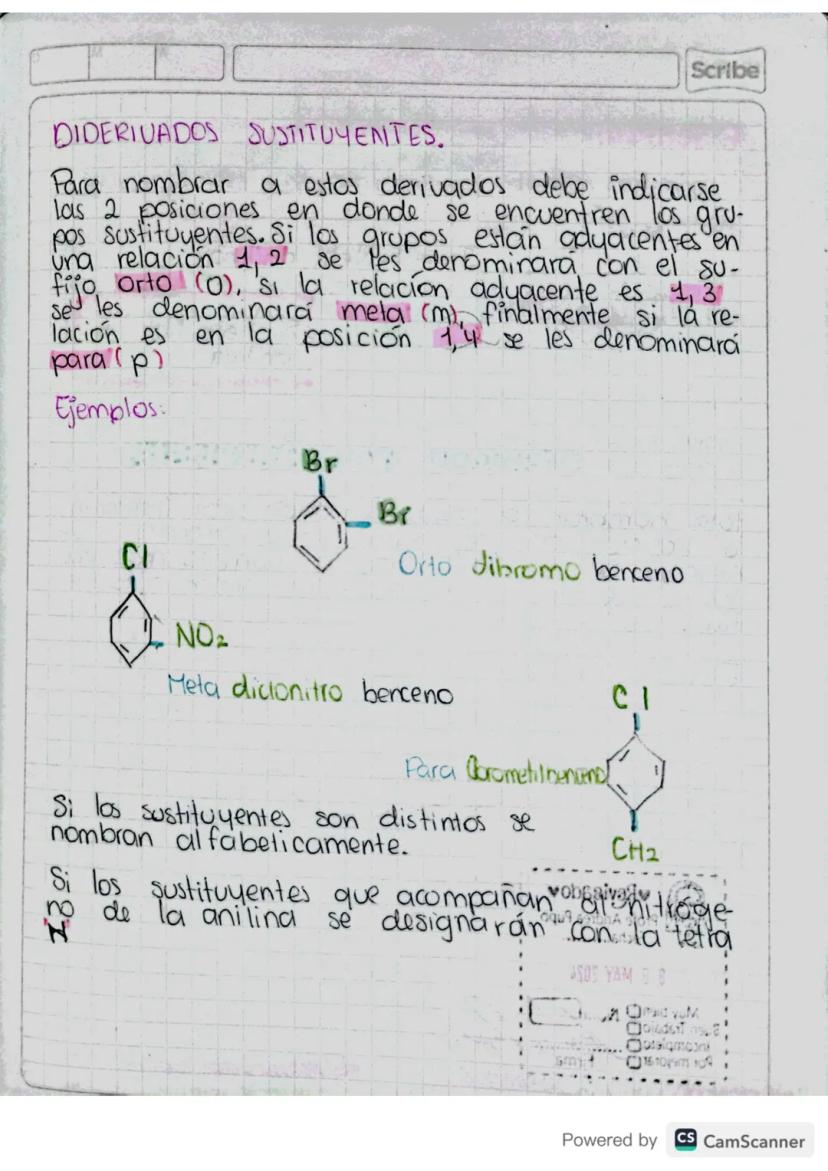 Scribe
DIDERIVADOS SUSTITUYENTES.
Para nombrar a estos derivados debe indicarse
las 2 posiciones en donde se encuentren los gru-
pos sustituyentes. Si los grupos están adyacentes en
una relación 1,2 se les denominará con el su-
fijo orto (o), si la relación adyacente es 1,3
se les denominará meta (m), finalmente si la re-
lación es en la posición 1,4 se les denominará
para (p)
Ejemplos:
Br
Br
Orto dibromo benceno
Cl
NO2
Meta diclonitro benceno
Cl
Para
CH2
Si los sustituyentes son distintos se
nombran alfabeticamente.
Si los sustituyentes que acompañan al nitróge-
no de la anilina se designarán con la letra
"N"
Powered by CS CamScanner